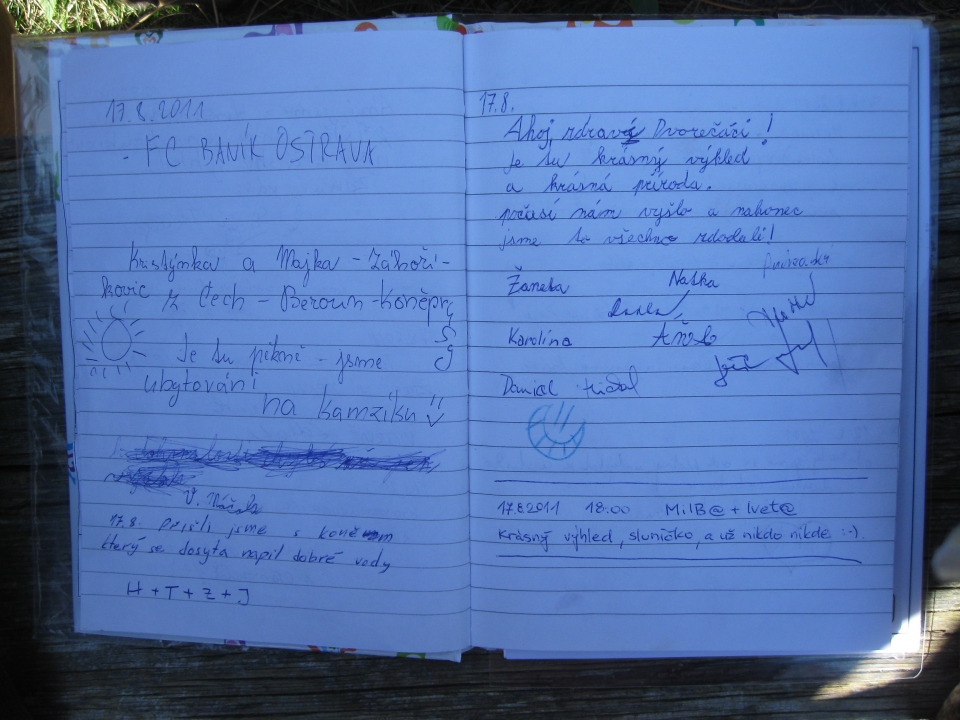 17.8.2011
- FC BANÍK OSTRAVA
Kristýnka a Majka - Záhoří-
kovic z Čech - Beroun - Koněprusy
Je tu pěkně - jsme
ubytování
na Kamzíku
V.
17.8. přišli jsme s koněm
který se dosyta napil dobré vody
H + T + Z + J
17.8.
Ahoj, zdraví Dvorečáci!
Je tu krásný výhled
a krásná příroda.
počasí nám vyšlo a nakonec
jsme to všechno zdodali!
Žaneta Natka
Karolína
Daniel
17.8.2011 18:00 MilB@ + Ivet@
Krásný výhled, sluníčko, a už nikdo nikde :-).